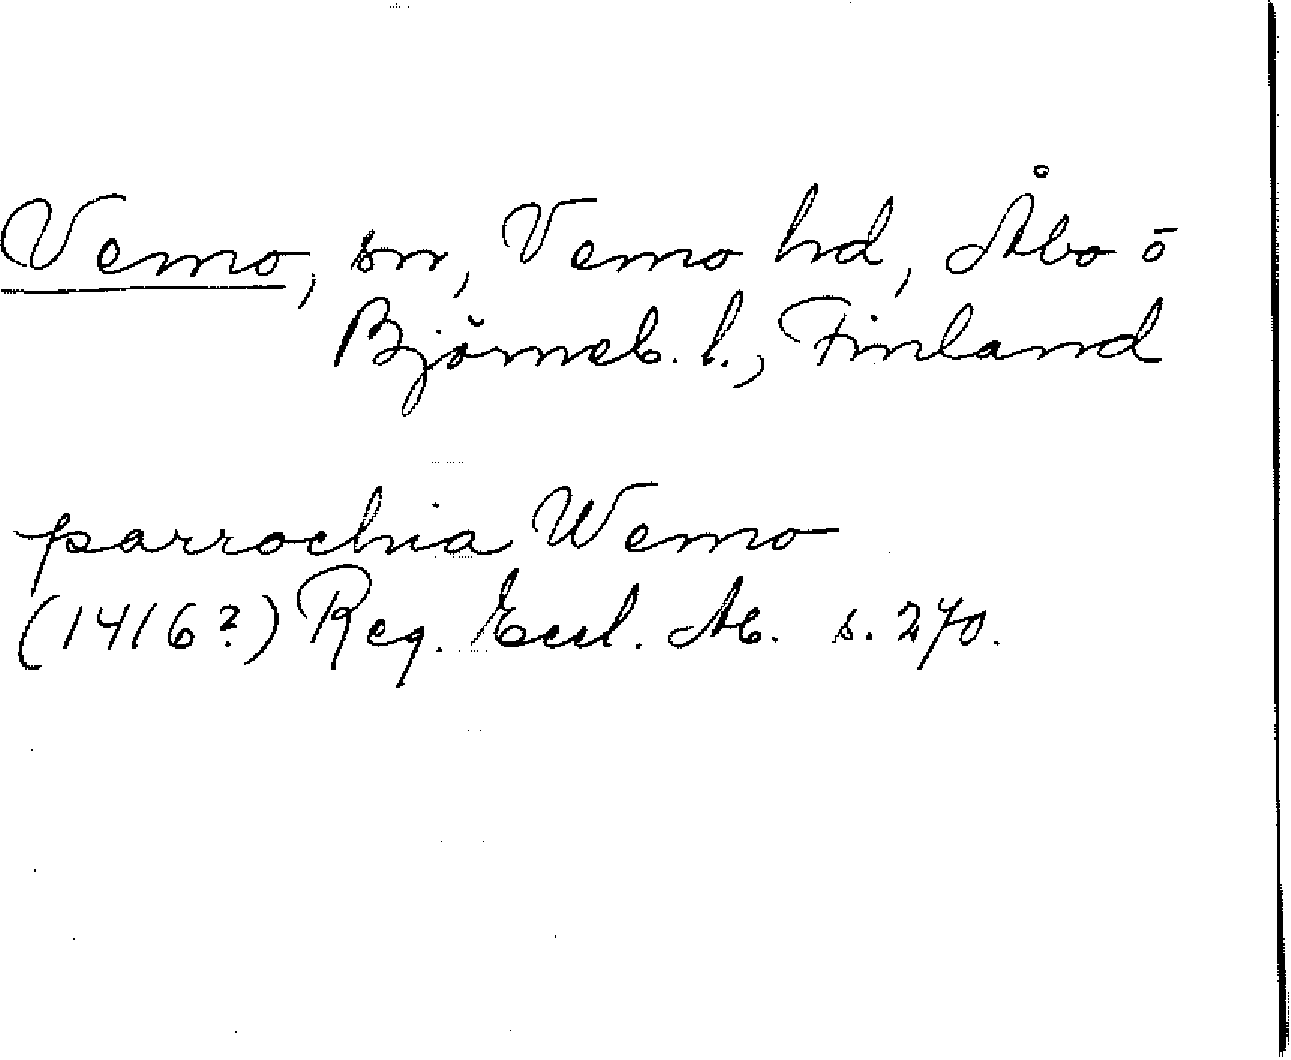 Vemo, sn, Vemo hd, Åbo o
Björneb. l., Finland
parrochia Wemo
(1416?) Reg. Eccl. Ab. s. 270.